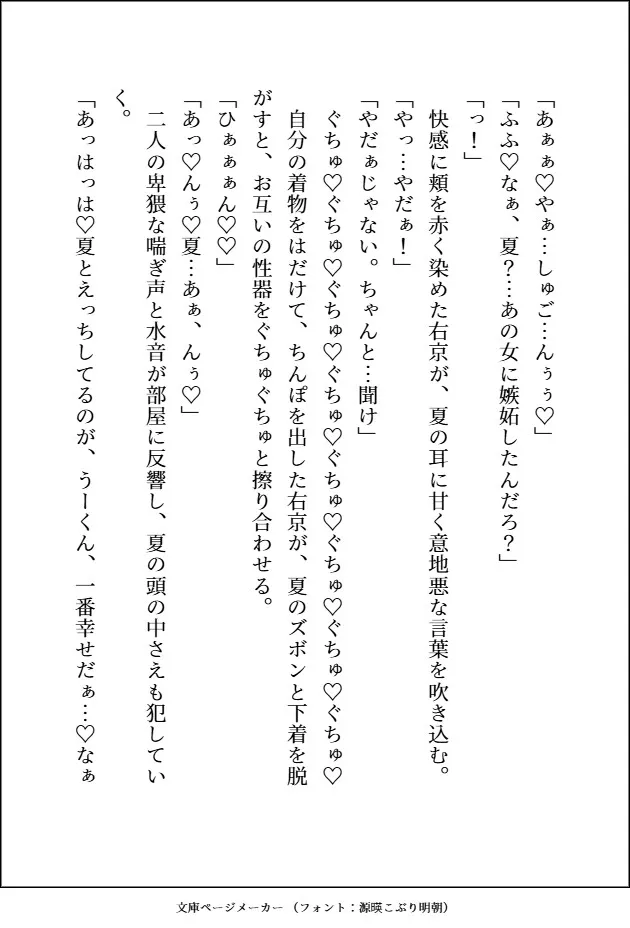 「あぁぁ♡やぁ…しゅご…んぅぅ♡」
「ふふ♡なぁ、夏？…あの女に嫉妬したんだろ？」
「っ！」
快感に頬を赤く染めた右京が、夏の耳に甘く意地悪な言葉を吹き込む。
「やっ…やだぁ！」
「やだぁじゃない。ちゃんと…聞け」
ぐちゅ♡ぐちゅ♡ぐちゅ♡ぐちゅ♡ぐちゅ♡ぐちゅ♡ぐちゅ♡ぐちゅ♡
自分の着物をはだけて、ちんぽを出した右京が、夏のズボンと下着を脱
がすと、お互いの性器をぐちゅぐちゅと擦り合わせる。
「ひぁぁぁん♡♡」
「あっ♡んぅ♡夏…あぁ、んぅ♡」
二人の卑猥な喘ぎ声と水音が部屋に反響し、夏の頭の中さえも犯してい
く。
「あっはっは♡夏とえっちしてるのが、うーくん、一番幸せだぁ…♡なぁ
文庫ページメーカー（フォント：源暎こぶり明朝）